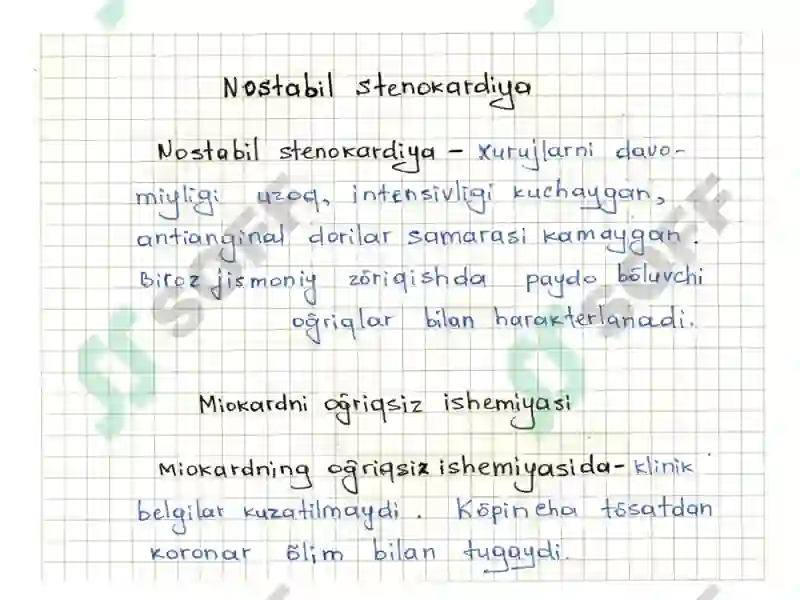 Nostabil stenokardiya
Nostabil stenokardiya - xurujlarni davo-
miyligi uzoq, intensivligi kuchaygan,
antianginal dorilar samarasi kamaygan.
Biroz jismoniy zõriqishda paydo bõluvchi
oğriqlar bilan harakterlanadi.
Miokardni oğriqsiz ishemiyasi
Miokardning oğriqsiz ishemiyasida - klinik
belgilar kuzatilmaydi. Kõpineha tõsatdan
koronar õlim bilan tugaydi.
SOFF
SOFF